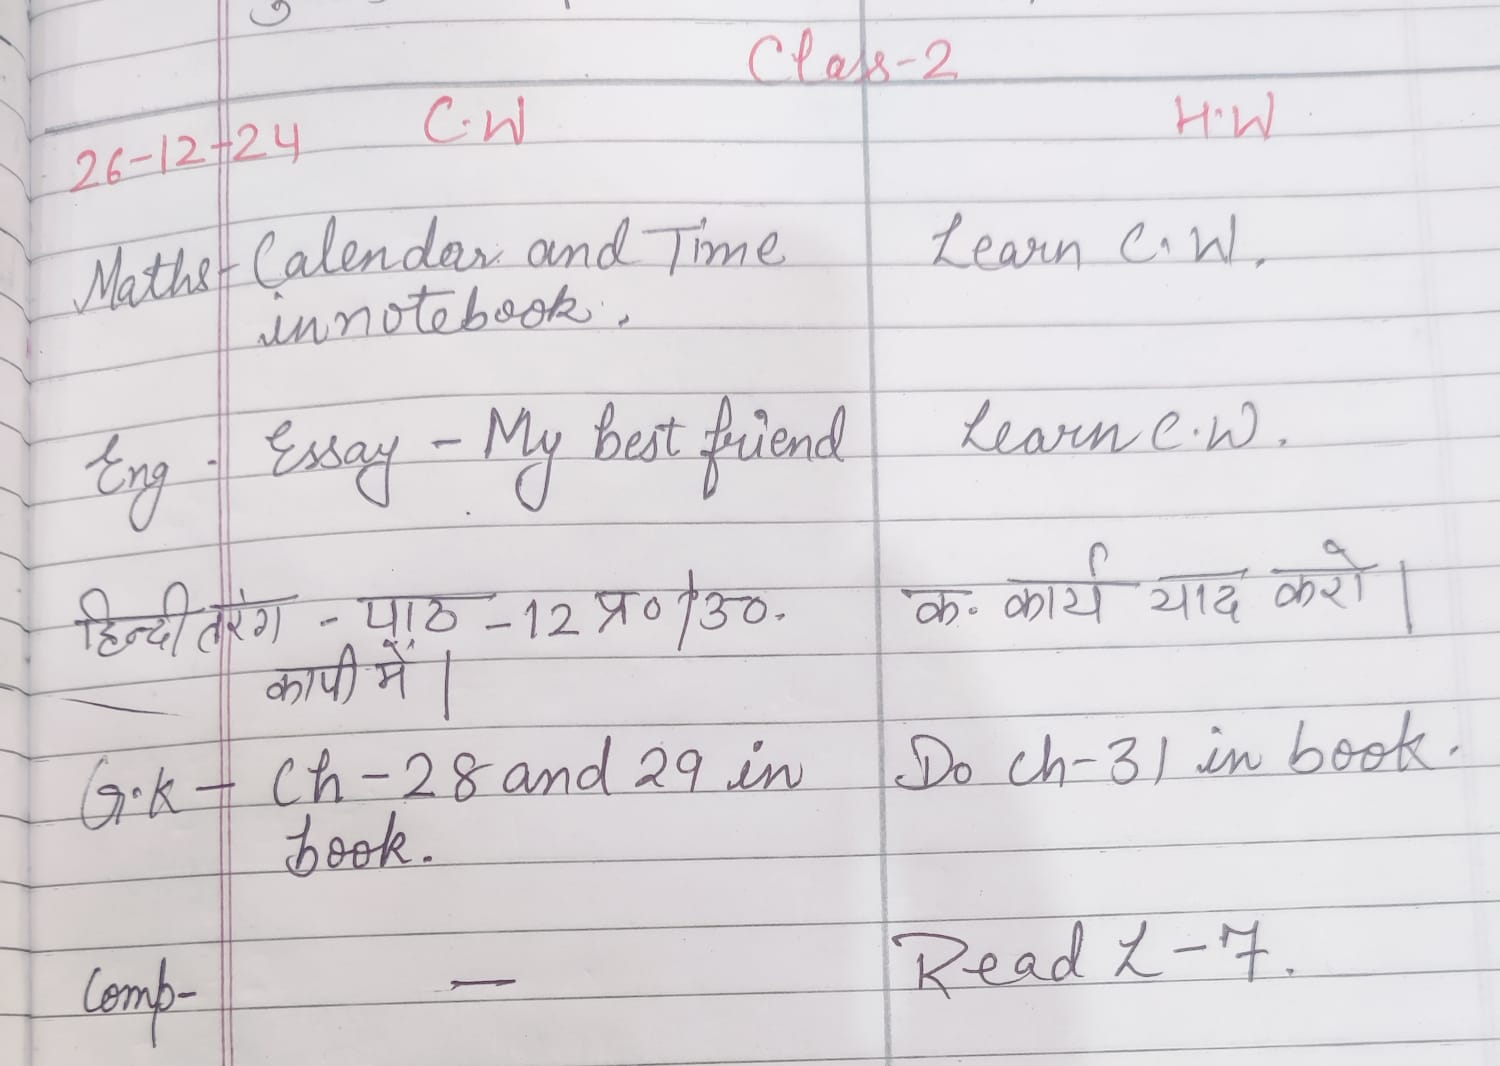 Class-2
26-12-24 C.W H.W
Maths- Calendar and Time Learn C.W.
in notebook.
Eng - Essay - My best friend Learn C.W.
हिन्दी तरंग - पाठ - 12 प्र०/उ०. क. कार्य याद करो |
कापी में |
G.K - Ch - 28 and 29 in Do ch-31 in book.
book.
Comp- — Read L-7.